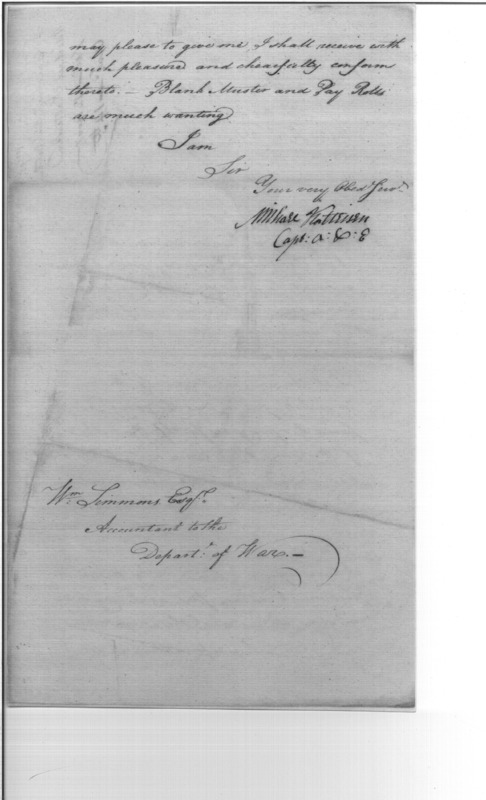 may please to give me I shall receive with
much pleasure and chearfully conform
thereto. — Blank Muster and Pay Rolls
are much wanting
I am
Sir
Your very Obedt. Servt.
Capt: A: & E
Wm. Simmons Esqr.
Accountant to the
Departt. of War. —